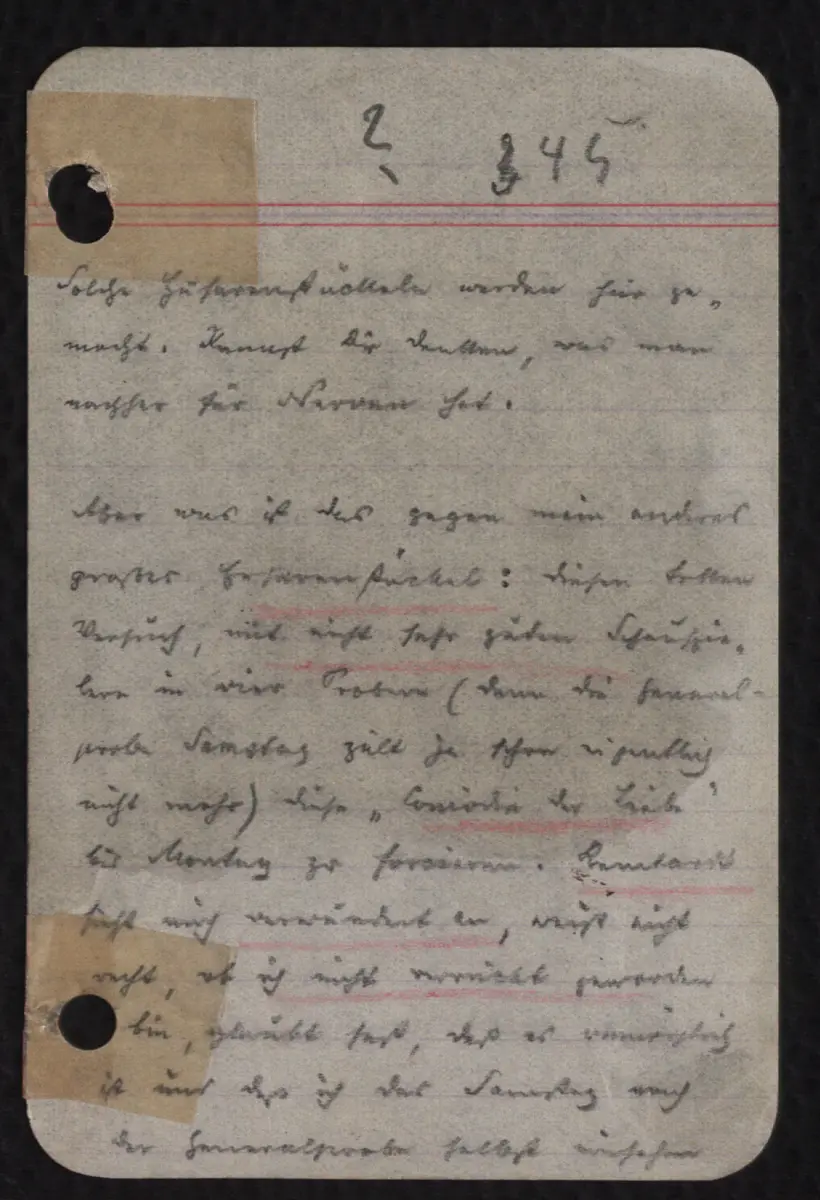 2 345
Solche Husarenstückeln werden hier ge-
macht. Kannst Dir denken, was man
nachher für Nerven hat.
Aber was ist das gegen mein anderes
großes Husarenstückel: diesen tollen
Versuch, mit nicht sehr guten Schauspie-
lern in vier Proben (denn die General-
probe Samstag zält ja schon eigentlich
nicht mehr) diese „Comödie der Liebe“
bis Montag zu forcieren.
sieht mich verwundert an, weiß nicht
recht, ob ich nicht verrückt geworden
bin, glaubt fest, daß es unmöglich
ist und daß ich das Samstag nach
der Generalprobe selbst einsehen